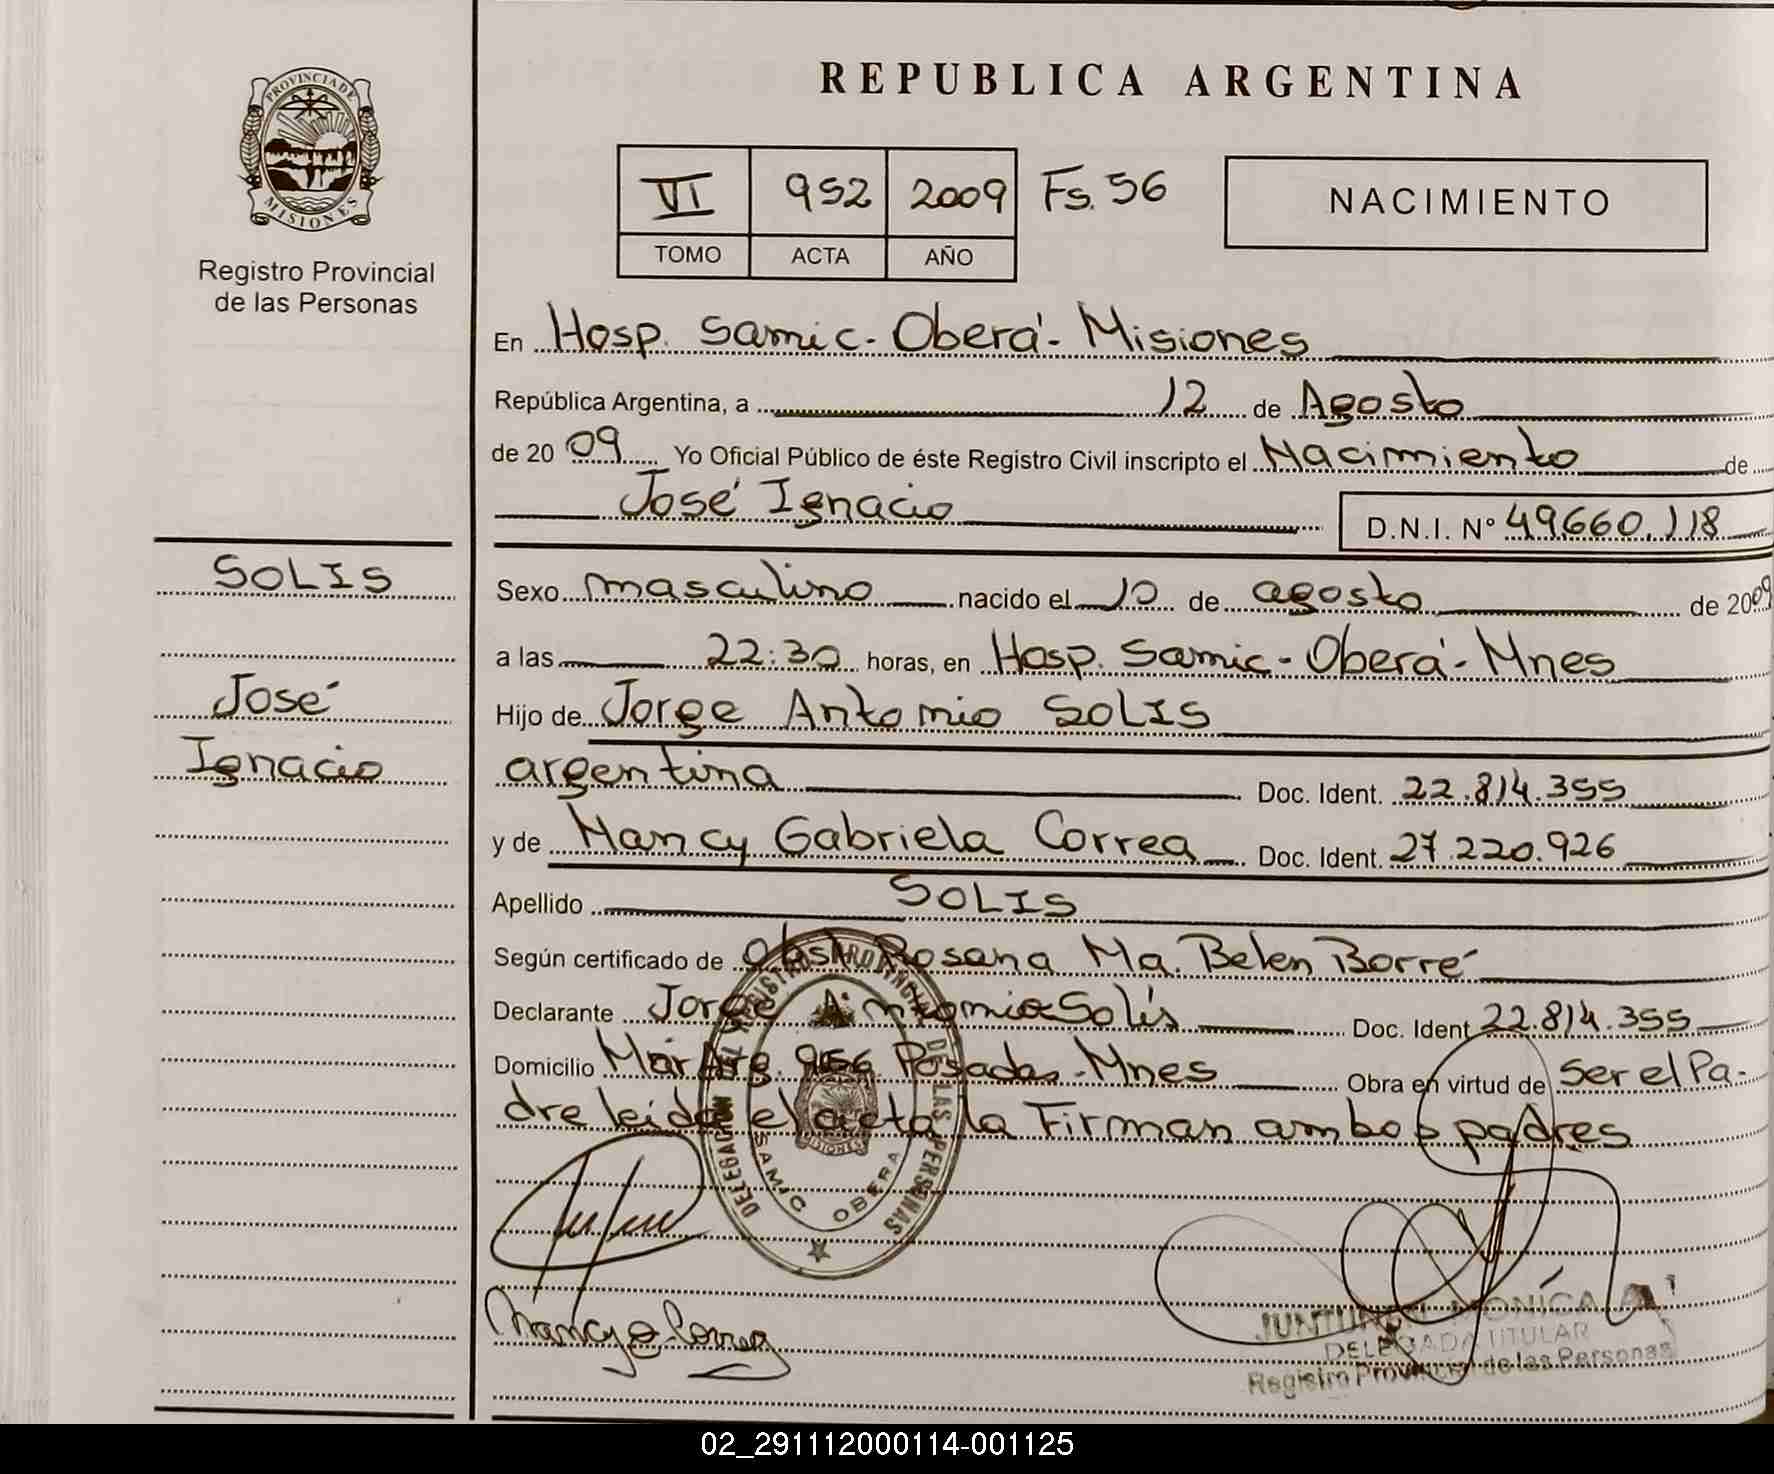 PROVINCIA DE
MISIONES
Registro Provincial
de las Personas
REPUBLICA ARGENTINA
VI 952 2009 Fs. 56
TOMO ACTA AÑO
NACIMIENTO
En Hosp. Samic - Oberá - Misiones
República Argentina, a 12 de Agosto
de 2009 Yo Oficial Público de éste Registro Civil inscripto el Nacimiento de
José Ignacio D.N.I. Nº 49.660.118
SOLIS
José
Ignacio
Sexo masculino nacido el 10 de agosto de 2009
a las 22:30 horas, en Hosp. Samic - Oberá - Mnes
Hijo de Jorge Antonio SOLIS
argentina Doc. Ident. 22.814.355
y de Nancy Gabriela Correa Doc. Ident. 27.220.926
Apellido SOLIS
Según certificado de Obst. Rosana Ma. Belen Borré
Declarante Jorge Antonio Solís Doc. Ident 22.814.355
Domicilio Mar Arg. 956 Posadas - Mnes Obra en virtud de Ser el Pa-
dre leida el acta la Firman ambos padres
REGISTRO PROVINCIAL DE LAS PERSONAS
DELEGACION
SAMIC OBERA
MISIONES
Nancy G. Correa
MONICA
DELEGADA TITULAR
Registro Provincial de las Personas
02_291112000114-001125